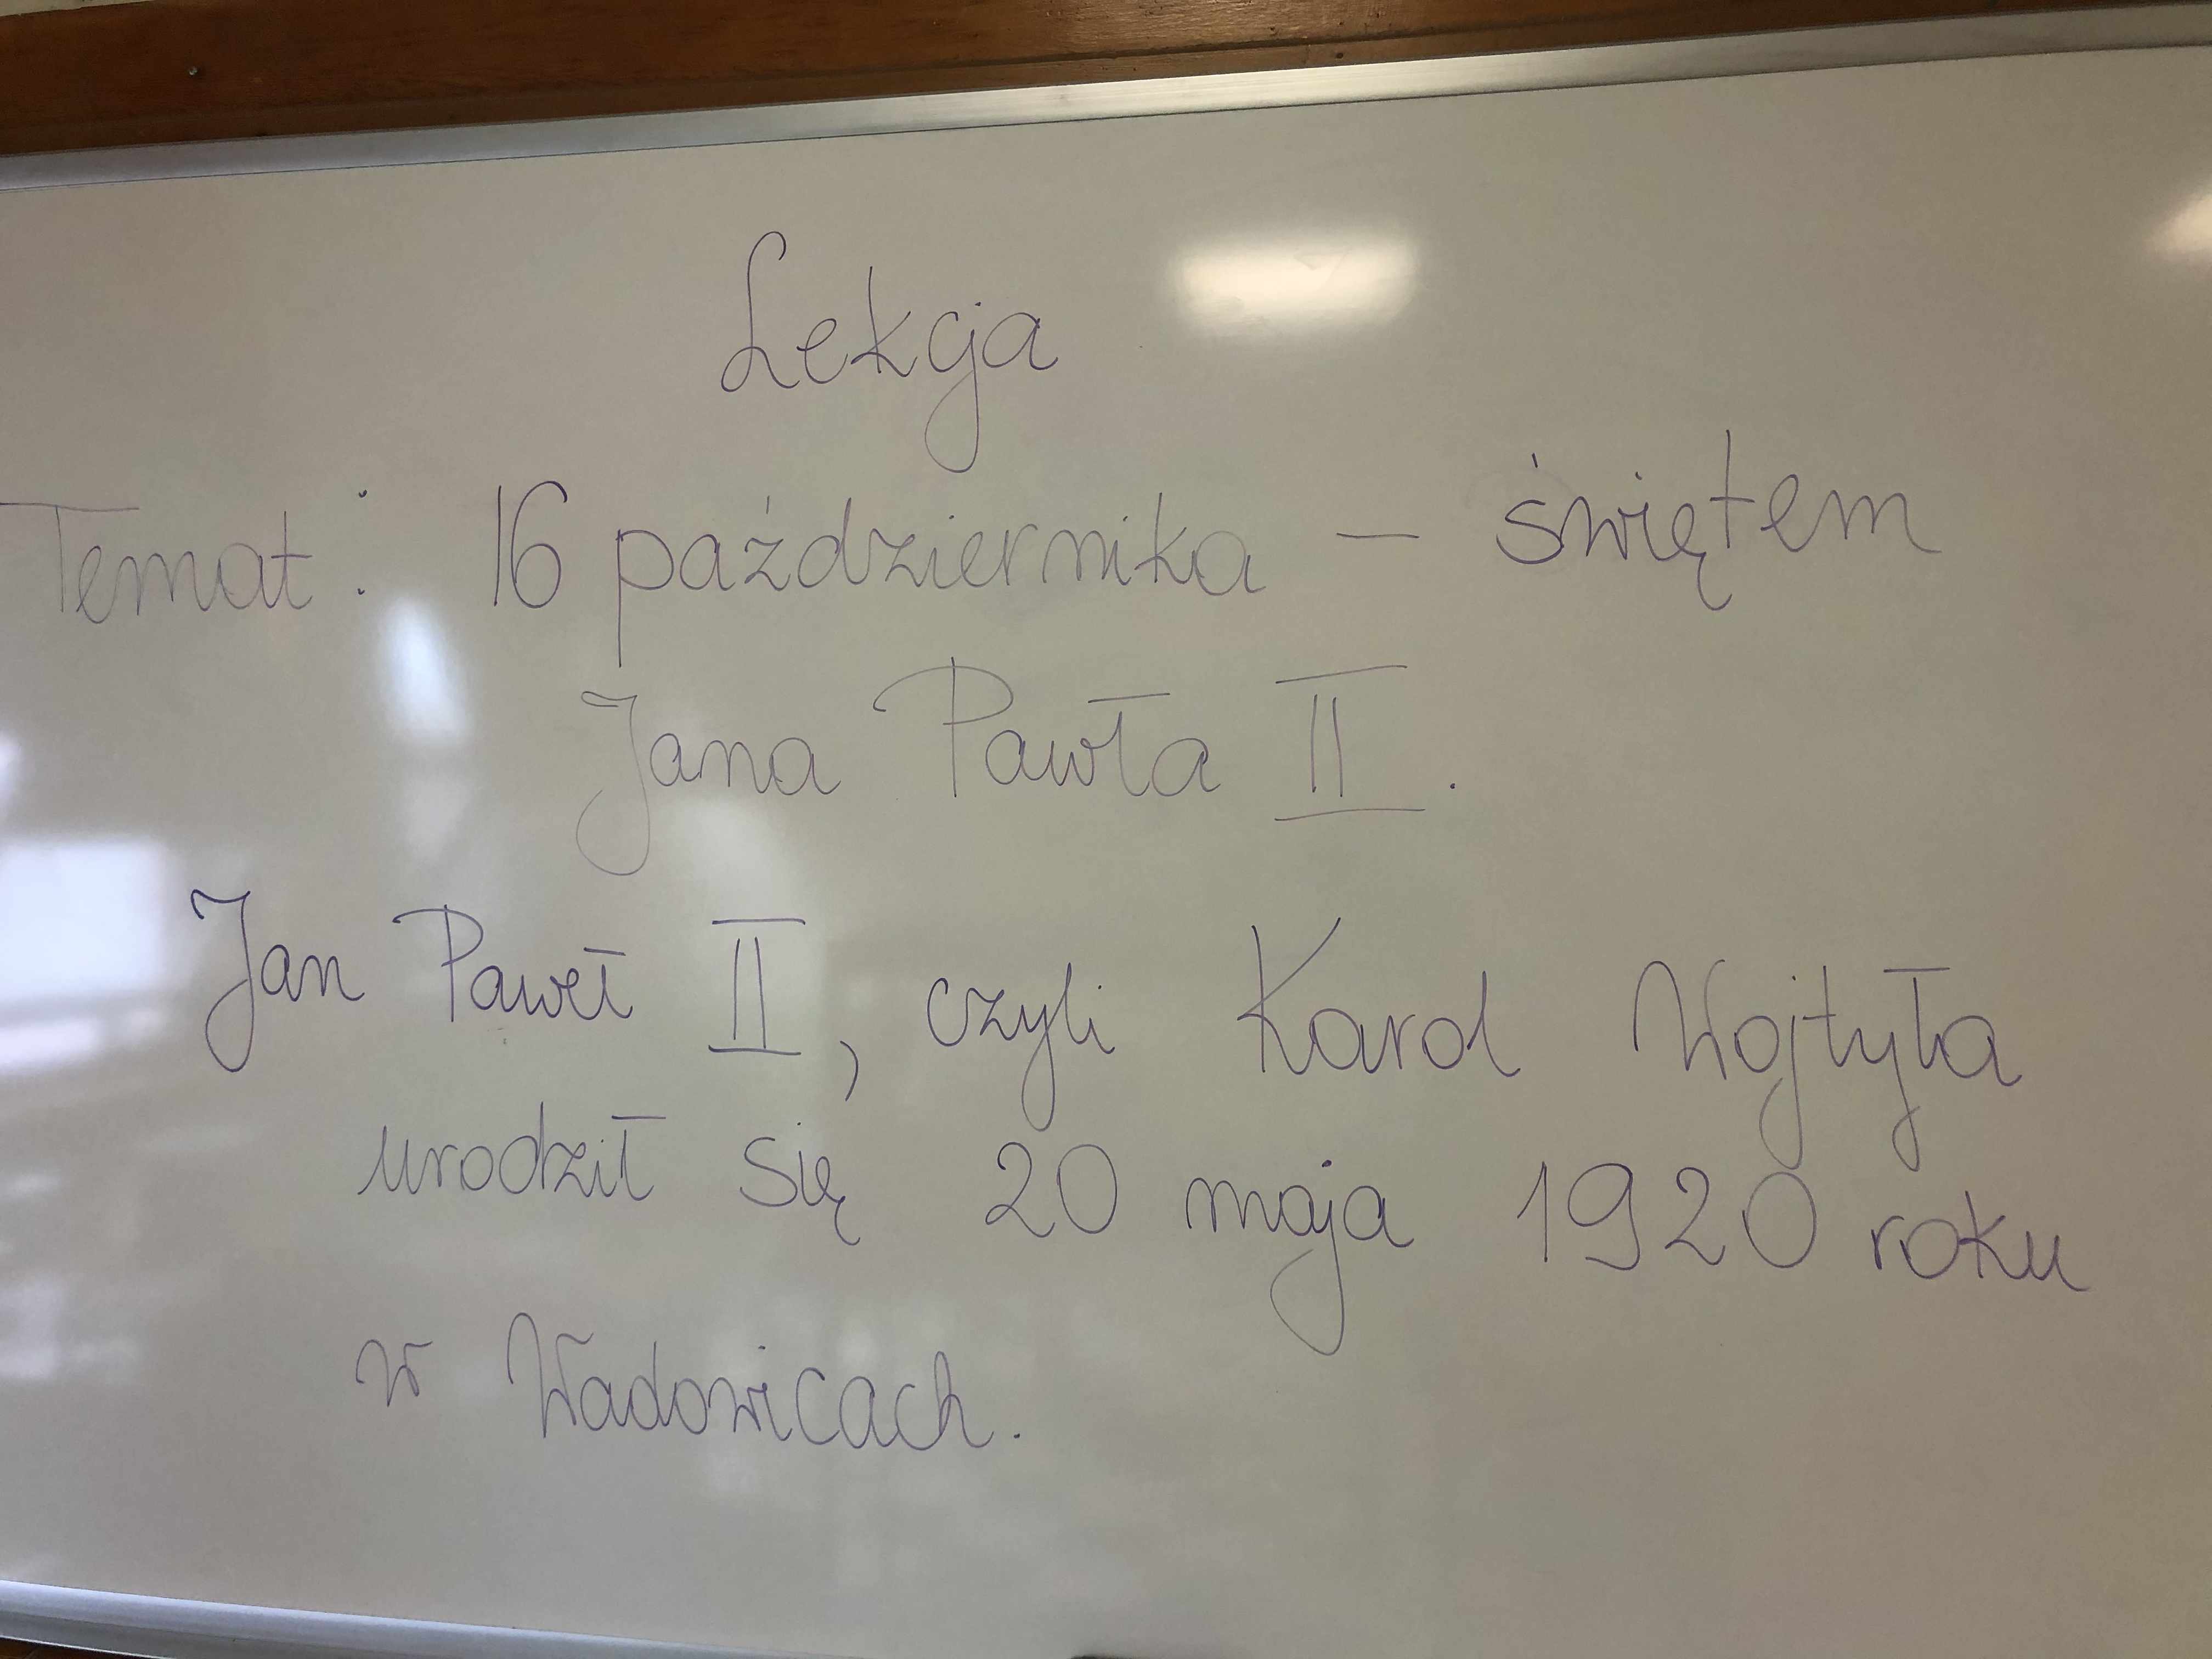 Lekcja
Temat: 16 października – świętem
Jana Pawła II.
Jan Paweł II, czyli Karol Wojtyła
urodził się 20 maja 1920 roku
w Wadowicach.